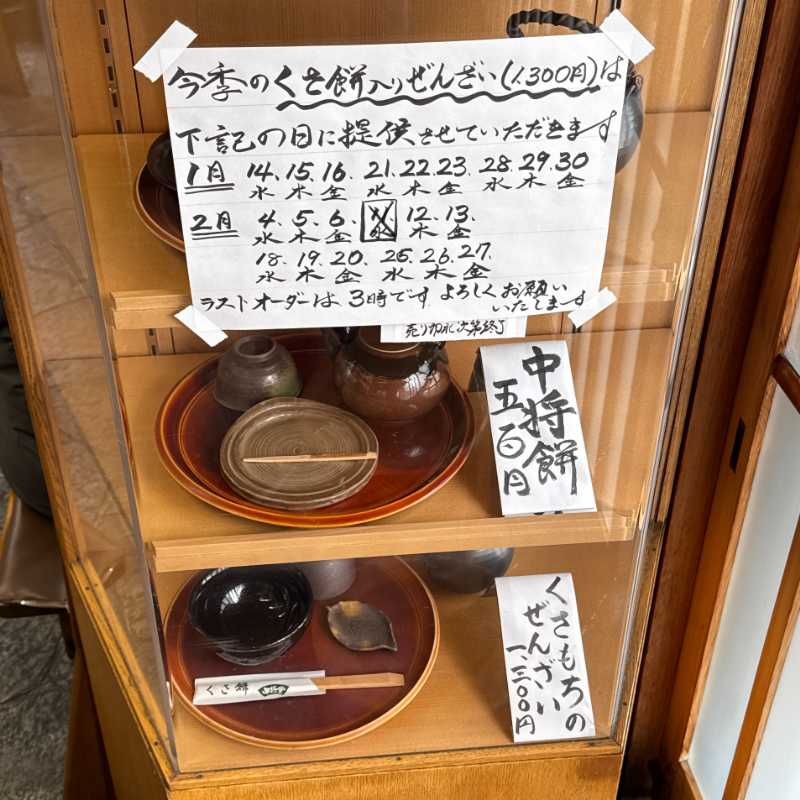 今季のくさ餅入りぜんざい(1,300円)は
下記の日に提供させていただきます
1月 14. 15. 16. 21. 22. 23. 28. 29. 30
水 木 金 水 木 金 水 木 金
2月 4. 5. 6. 12. 13.
水 木 金 水 木 金
18. 19. 20. 25. 26. 27.
水 木 金 水 木 金
ラストオーダーは 3時です よろしくお願い
いたします
売り切れ次第終了
中将餅
五百円
くさもちの
ぜんざい
一、三〇〇円
くさ餅